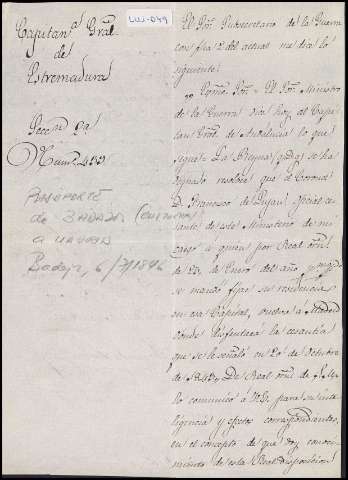 LUJ-049
Capitan.ª Gral
de
Estremadura
Secc.n 9ª
Num.
PASAPORTE
de BADAJOZ
a
Badajoz, 6/7/1846
El Sor. Subsecretario de la Guerra
con fha 2 del actual me dice lo
siguiente.
Escmo. Sor. = El Sor. Ministro
de la Guerra dice hoy al Capi-
tan Gral. de Andalucia lo que
sigue = La Reyna (q.D.g.) se ha
dignado resolver que el Coronel
D. Francisco de Lujan, oficial ce-
sante de este Ministerio de mi
cargo á quien por Real orn.
de 23 de Enero del año
se mandó fijase su residencia
en esa Capital, vuelva á Madrid
donde disfrutará la cesantia
que se le señaló en 20 de Octubre
de 1843. De Real orn. de S.M.
lo comunico á V.E. para su inte-
ligencia y efectos correspondientes,
en el concepto de que doy conoci-
miento de esta Real disposicion